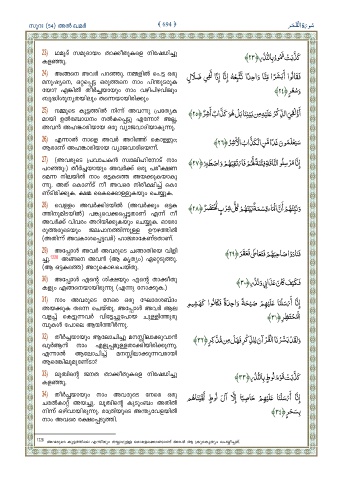 സൂറ (54) അൽ ഖമർ
﴾ 694 ﴿
سُورَةُ الْقَمَر
23) ഥമൂദ് സമുദായം താക്കീതുകളെ നിഷേധിച്ചു
കളഞ്ഞു.
كَذَّبَتْ ثَمُودُ بِالنُّذُرِ ﴿٢٣﴾
24) അങ്ങനെ അവർ പറഞ്ഞു. നമ്മളിൽ പെട്ട ഒരു
മനുഷ്യനെ, ഒറ്റപ്പെട്ട ഒരുത്തനെ നാം പിന്തുടരുക
യോ? എങ്കിൽ തീർച്ചയായും നാം വഴിപിഴവിലും
ബുദ്ധിശൂന്യതയിലും തന്നെയായിരിക്കും
فَقَالُوا أَبَشَرًا مِنَّا وَاحِدًا نَتَّبِعُهُ إِنَّا إِذًا لَفِي ضَلَالٍ
وَسُعُرٍ ﴿٢٤﴾
25) നമ്മുടെ കൂട്ടത്തിൽ നിന്ന് അവന്നു പ്രത്യേക
മായി ഉൽബോധനം നൽകപ്പെട്ടു എന്നോ? അല്ല,
അവൻ അഹങ്കാരിയായ ഒരു വ്യാജവാദിയാകുന്നു.
أَأُلْقِيَ الذِّكْرُ عَلَيْهِ مِنْ بَيْنِنَا بَلْ هُوَ كَذَّابٌ أَشِرٌ ﴿٢٥﴾
26) എന്നാൽ നാളെ അവർ അറിഞ്ഞ് കൊള്ളും;
ആരാണ് അഹങ്കാരിയായ വ്യാജവാദിയെന്ന്.
سَيَعْلَمُونَ غَدًا مَنِ الْكَذَّابُ الْأَشِرُ ﴿٢٦﴾
27) (അവരുടെ പ്രവാചകൻ സ്വാലിഹിനോട് നാം
പറഞ്ഞു:) തീർച്ചയായും അവർക്ക് ഒരു പരീക്ഷണ
മെന്ന നിലയിൽ നാം ഒട്ടകത്തെ അയക്കുകയാകു
ന്നു. അത് കൊണ്ട് നീ അവരെ നിരീക്ഷിച്ച് കൊ
ണ്ടിരിക്കുക. ക്ഷമ കൈക്കൊള്ളുകയും ചെയ്യുക.
إِنَّا مُرْسِلُو النَّاقَةِ فِتْنَةً لَهُمْ فَارْتَقِبْهُمْ وَاصْطَبِرْ ﴿٢٧﴾
28) വെള്ളം അവർക്കിടയിൽ (അവർക്കും ഒട്ടക
ത്തിനുമിടയിൽ) പങ്കുവെക്കപ്പെട്ടതാണ് എന്ന് നീ
അവർക്ക് വിവരം അറിയിക്കുകയും ചെയ്യുക. ഓരോ
രുത്തരുടെയും ജലപാനത്തിന്നുള്ള ഊഴത്തിൽ
(അതിന്ന് അവകാശപ്പെട്ടവർ) ഹാജരാകേണ്ടതാണ്.
وَنَبِّئْهُمْ أَنَّ الْمَاءَ قِسْمَةٌ بَيْنَهُمْ كُلُّ شِرْبٍ مُحْتَضَرٌ ﴿٢٨﴾
29) അപ്പോൾ അവർ അവരുടെ ചങ്ങാതിയെ വിളി
ച്ചു. അങ്ങനെ അവൻ (ആ കൃത്യം) ഏറ്റെടുത്തു.
(ആ ഒട്ടകത്തെ) അറുകൊലചെയ്തു.
فَنَادَوْا صَاحِبَهُمْ فَتَعَاطَى فَعَقَرَ ﴿٢٩﴾
30) അപ്പോൾ എന്റെ ശിക്ഷയും എന്റെ താക്കീതു
കളും എങ്ങനെയായിരുന്നു (എന്നു നോക്കുക.)
فَكَيْفَ كَانَ عَذَابِي وَنُذُرِ ﴿٣٠﴾
31) നാം അവരുടെ നേരെ ഒരു ഘോരശബ്ദം
അയക്കുക തന്നെ ചെയ്തു. അപ്പോൾ അവർ ആല
വളച്ച് കെട്ടുന്നവൻ വിട്ടേച്ചുപോയ ചുള്ളിത്തുരു
മ്പുകൾ പോലെ ആയിത്തീർന്നു.
إِنَّا أَرْسَلْنَا عَلَيْهِمْ صَيْحَةً وَاحِدَةً فَكَانُوا كَهَشِيمِ
الْمُحْتَظِرِ ﴿٣١﴾
32) തീർച്ചയായും ആലോചിച്ചു മനസ്സിലാക്കുവാൻ
ഖുർആൻ നാം എളുപ്പമുള്ളതാക്കിയിരിക്കുന്നു.
എന്നാൽ ആലോചിച്ച് മനസ്സിലാക്കുന്നവരായി
ആരെങ്കിലുമുണ്ടോ?
وَلَقَدْ يَسَّرْنَا الْقُرْآنَ لِلذِّكْرِ فَهَلْ مِنْ مُدَّكِرٍ ﴿٣٢﴾
33) ലൂത്വിന്റെ ജനത താക്കീതുകളെ നിഷേധിച്ചു
കളഞ്ഞു.
كَذَّبَتْ قَوْمُ لُوطٍ بِالنُّذُرِ ﴿٣٣﴾
34) തീർച്ചയായും നാം അവരുടെ നേരെ ഒരു
ചരൽകാറ്റ് അയച്ചു. ലൂത്വിന്റെ കുടുംബം അതിൽ
നിന്ന് ഒഴിവായിരുന്നു. രാത്രിയുടെ അന്ത്യവേളയിൽ
നാം അവരെ രക്ഷപ്പെടുത്തി.
إِنَّا أَرْسَلْنَا عَلَيْهِمْ حَاصِبًا إِلَّا آلَ لُوطٍ نَجَّيْنَاهُمْ
بِسَحَرٍ ﴿٣٤﴾